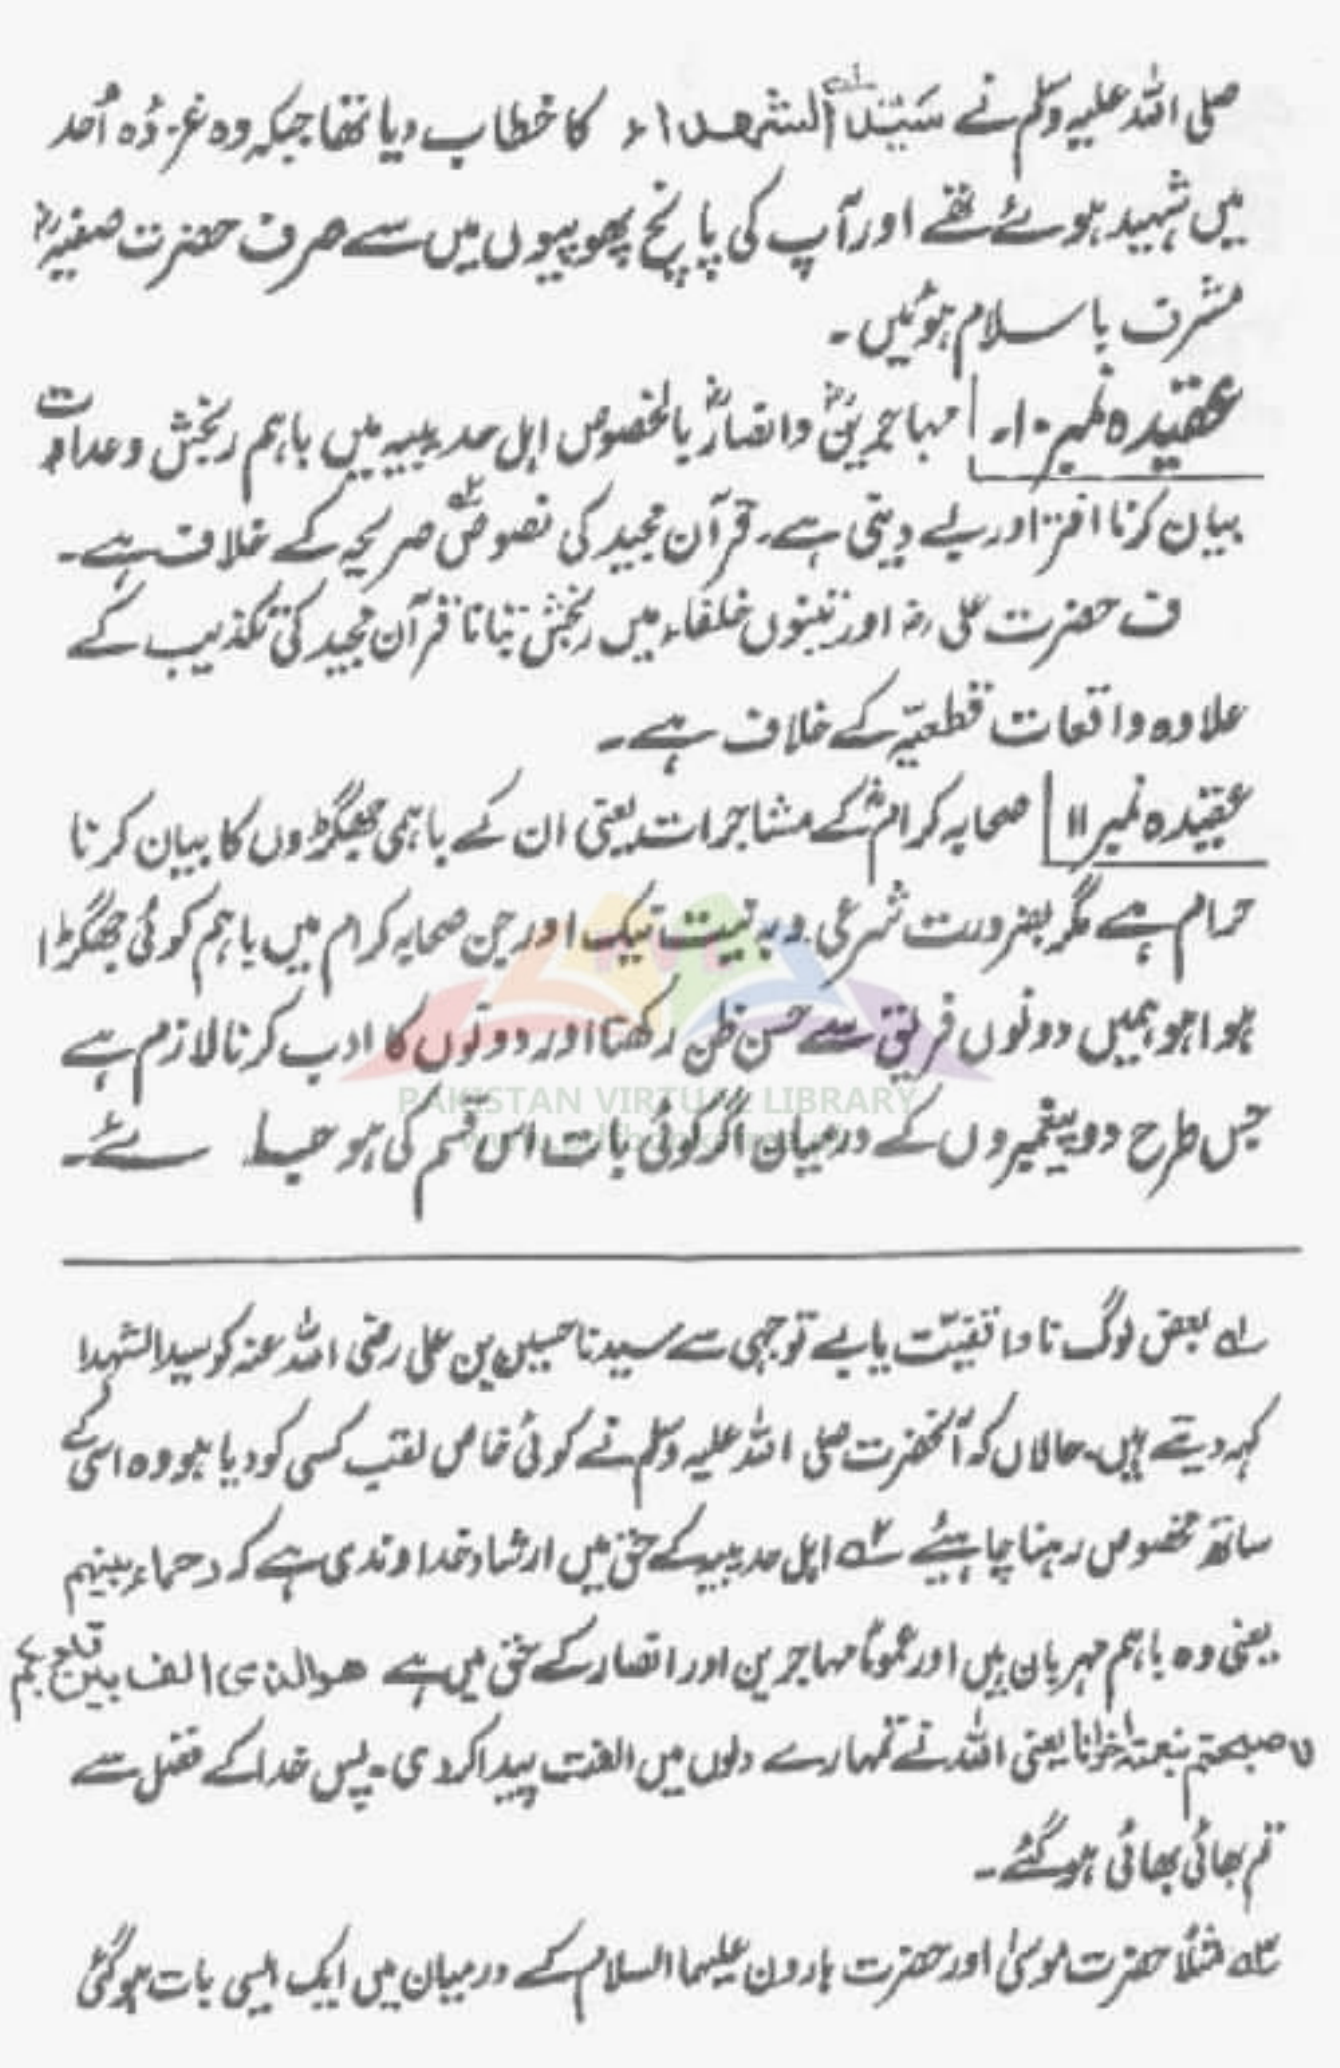 صلی اللہ علیہ وسلم نے سَیِّدُ الشہداء کا خطاب دیا تھا جبکہ وہ غزوۂ اُحد
میں شہید ہوئے تھے اور آپ کی پانچ پھوپیوں میں سے صرف حضرت صفیہؓ
مشرف باسلام ہوئیں۔
عقیدہ نمبر ۱۰۔ مہاجرینؓ وانصارؓ بالخصوص اہل حدیبیہ میں باہم رنجش و عداوت
بیان کرنا افترا اور بے دینی ہے، قرآن مجید کی نصوص صریحہ کے خلاف ہے۔
ف حضرت علیؓ اور تینوں خلفاء میں رنجش بتانا قرآن مجید کی تکذیب کے
علاوہ واقعات قطعیّہ کے خلاف ہے۔
عقیدہ نمبر ۱۱ صحابہ کرامؓ کے مشاجرات یعنی ان کے باہمی جھگڑوں کا بیان کرنا
حرام ہے مگر بضرورت شرعی و بہ نیت نیک اور جن صحابہ کرام میں باہم کوئی جھگڑا
ہوا ہو ہمیں دونوں فریق سے حسن ظن رکھنا اور دونوں کا ادب کرنا لازم ہے
PAKISTAN VIRTUAL LIBRARY
جس طرح دو پیغمبروں کے درمیان اگر کوئی بات اس قسم کی ہو جا ئے۔
۱ے بعض لوگ ناواقفیّت یا بے توجہی سے سیدنا حسین بن علی رضی اللہ عنہ کو سید الشہدا
کہہ دیتے ہیں۔ حالاں کہ آنحضرت صلی اللہ علیہ وسلم نے کوئی خاص لقب کسی کو دیا ہو وہ اسی کے
ساتھ مخصوص رہنا چاہیئے ۲ے اہل حدیبیہ کے حق میں ارشاد خداوندی ہے کہ رحماء بینہم
یعنی وہ باہم مہربان ہیں اور عموماً مہاجرین اور انصار کے حق میں ہے ھوالذی الف بین قلوبکم
فاصبحتم بنعمتہ اخوانا یعنی اللہ نے تمہارے دلوں میں الفت پیدا کر دی۔ پس خدا کے فضل سے
تم بھائی بھائی ہو گئے۔
۳ے مثلاً حضرت موسیٰ اور حضرت ہارون علیہما السلام کے درمیان میں ایک ایسی بات ہو گئی